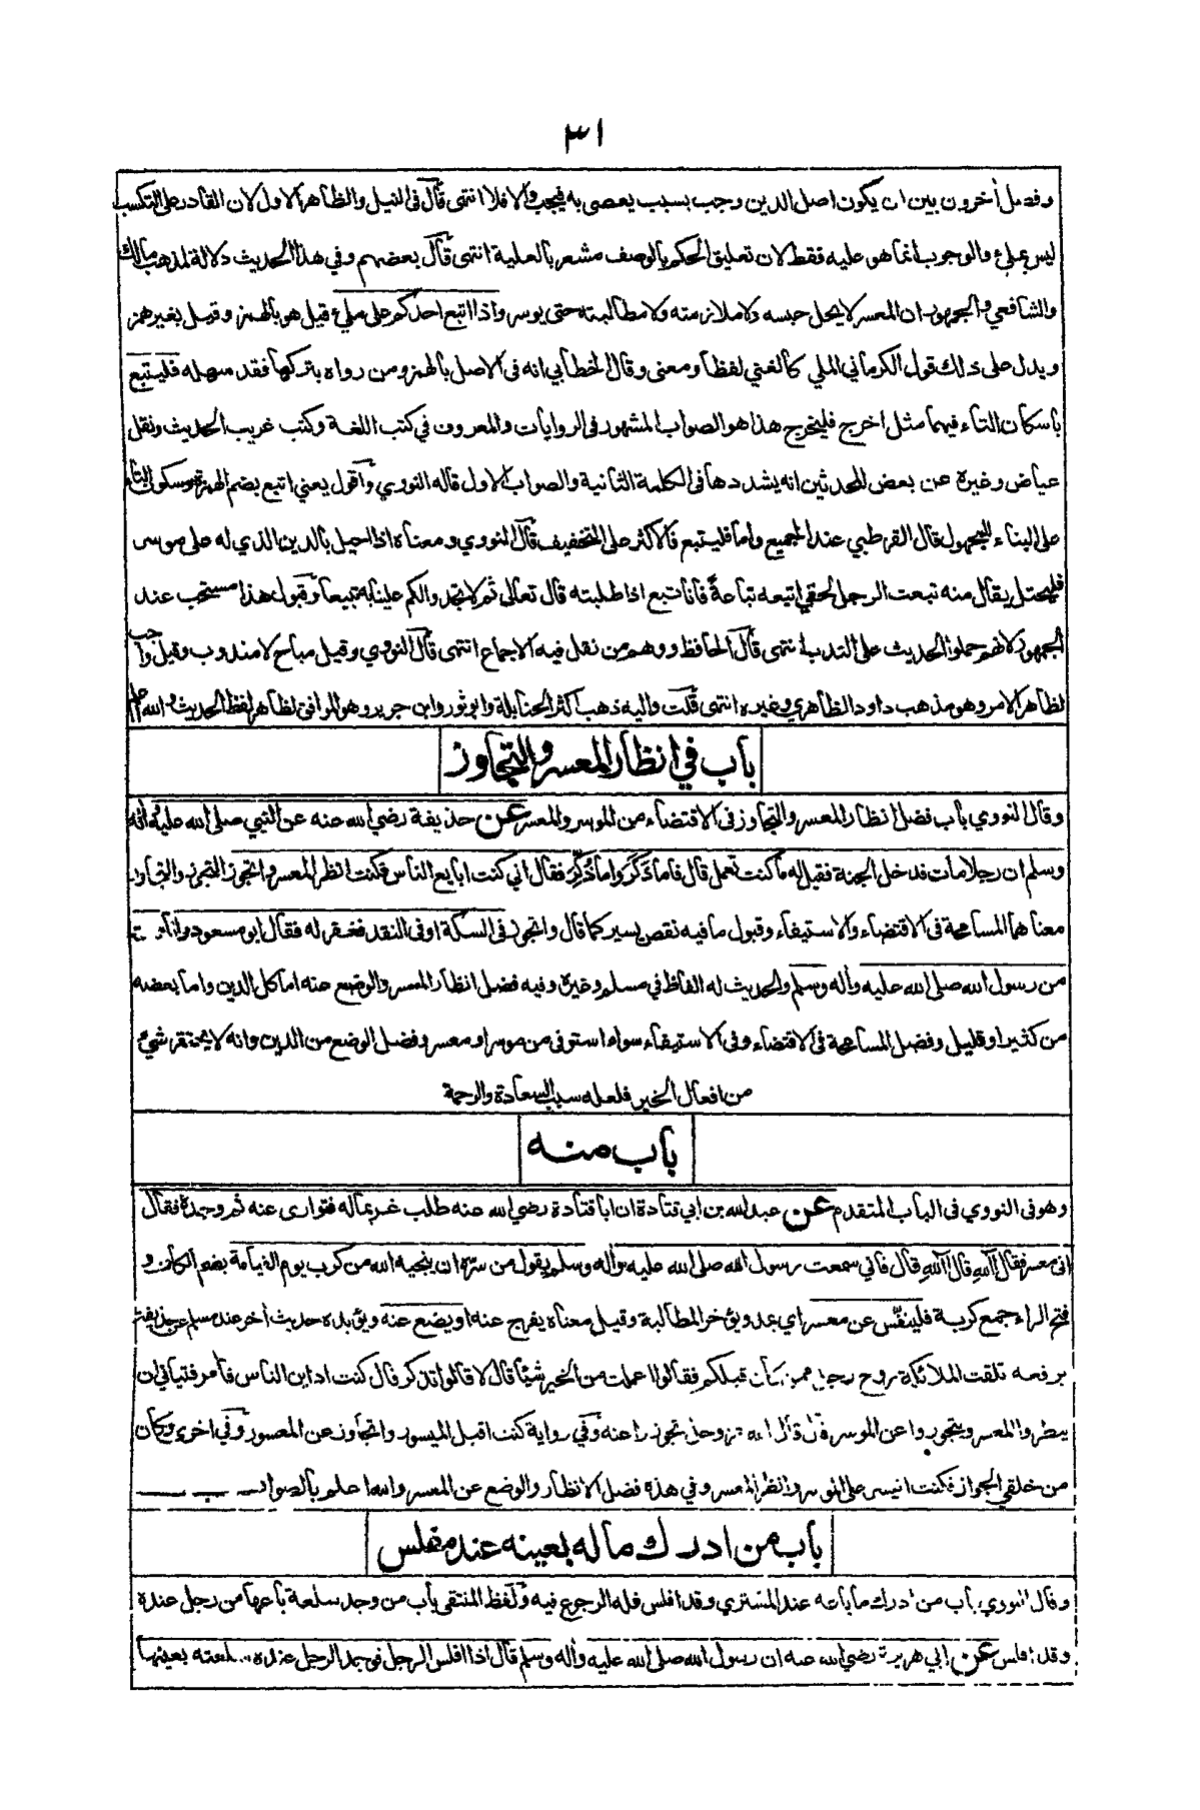 ٣١
وفصل أخرون بين ان يكون اصل الدين وجب بسبب يعصى به فيجب والا فلا انتهى قال فى النيل والظاهر الاول لان القادر على التكسب
ليس بملئ والوجوب انما هو عليه فقط لان تعليق الحكم بالوصف مشعر بالعلية انتهى قال بعضهم وفي هذا الحديث دلالة لمذهب مالك
والشافعي والجمهور ان المعسر لا يحل حبسه ولا ملازمته ولا مطالبته حتى يوسر واذا اتبع احدكم على ملئ قيل هو بالهمز وقيل بغير همز
ويدل على ذلك قول الكرماني الملي كالغني لفظا ومعنى وقال الخطابي انه فى الاصل بالهمز ومن رواه بتركها فقد سهله فليتبع
باسكان التاء فيهما مثل اخرج فليخرج هذا هو الصواب المشهور فى الروايات والمعروف في كتب اللغة وكتب غريب الحديث ونقل
عياض وغيره عن بعض المحدثين انه يشددها فى الكلمة الثانية والصواب الاول قاله النووي واقول يعني اتبع بضم الهمزة وسكون التاء
على البناء للمجهول قال القرطبي عند الجميع واما فليتبع فالاكثر على التخفيف قال النووي ومعناه اذا احيل بالدين الذي له على موسر
فليحتل يقال منه تبعت الرجل لحقي اتبعه تباعةً فانا تبع اذا طلبته قال تعالى ثم لا تجدوا لكم علينا به تبيعا وقبول هذا مستحب عند
الجمهور لانهم حملوا الحديث على الندب انتهى قال الحافظ ووهم من نقل فيه الاجماع انتهى قال النووي وقيل مباح لا مندوب وقيل واجب
لظاهر الامر وهو مذهب داود الظاهري وغيره انتهى قلت واليه ذهب اكثر الحنابلة وابو ثور وابن جرير وهو الموافق لظاهر لفظ الحديث والله اعلم
باب في انظار المعسر والتجاوز
وقال النووي باب فضل انظار المعسر والتجاوز فى الاقتضاء من الموسر والمعسر عن حذيفة رضي الله عنه عن النبي صلى الله عليه واله
وسلم ان رجلا مات فدخل الجنة فقيل له ما كنت تعمل قال فاما ذَكَرَ واما ذُكِّرَ فقال اني كنت ابايع الناس فكنت انظر المعسر واتجوز التجوز والتجاوز
معناهما المسامحة فى الاقتضاء والاستيفاء وقبول ما فيه نقص يسير كما قال واتجوز فى السكة او فى النقد فغفر له فقال ابو مسعود وانا سمعته
من رسول الله صلى الله عليه واله وسلم والحديث له الفاظ في مسلم وغيره وفيه فضل انظار المعسر والوضع عنه اما كل الدين واما بعضه
من كثير او قليل وفضل المسامحة فى الاقتضاء وفى الاستيفاء سواء استوفى من موسر او معسر وفضل الوضع من الدين وانه لا يحتقر شئ
من افعال الخير فلعله سبب السعادة والرحمة
باب منه
وهو فى النووي فى الباب المتقدم عن عبد الله بن ابي قتادة ان ابا قتادة رضي الله عنه طلب غريما له فتوارى عنه ثم وجده فقال
انى معسر فقال آللهِ قال آللهِ قال فاني سمعت رسول الله صلى الله عليه واله وسلم يقول من سره ان ينجيه الله من كرب يوم القيامة بضم الكاف و
فتح الراء جمع كربة فلينفّس عن معسر اي يمد ويؤخر المطالبة وقيل معناه يفرج عنه او يضع عنه ويؤيده حديث أخر عند مسلم عن حذيفة
يرفعه تلقت الملائكة روح رجل ممن كان قبلكم فقالوا اعملت من الخير شيئا قال لا قالوا تذكر قال كنت اداين الناس فامر فتياني ان
ينظروا المعسر ويتجوزوا عن الموسر قال قال الله عز وجل تجوزوا عنه وفي رواية كنت اقبل الميسور واتجاوز عن المعسور وفي اخرى وكان
من خلقي الجواز فكنت اتيسر على الموسر وانظر المعسر وفي هذه فضل الانظار والوضع عن المعسر والله اعلم بالصواب
باب من ادرك ماله بعينه عند مفلس
وقال النووي باب من ادرك ما باعه عند المشتري وقد افلس فله الرجوع فيه ولفظ المنتقى باب من وجد سلعة باعها من رجل عنده
وقد افلس عن ابي هريرة رضي الله عنه ان رسول الله صلى الله عليه واله وسلم قال اذا افلس الرجل فوجد الرجل عنده سلعته بعينها